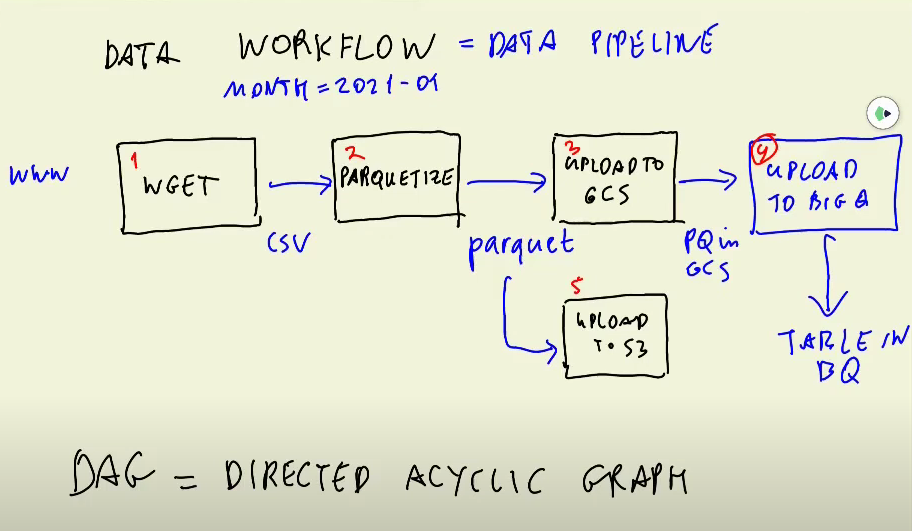 DATA WORKFLOW = DATA PIPELINE
MONTH = 2021-01
WWW
1
WGET
CSV
2
PARQUETIZE
parquet
3
UPLOAD TO
GCS
PQ in
GCS
4
UPLOAD
TO BIG Q
TABLE IN
BQ
5
UPLOAD
TO S3
DAG = DIRECTED ACYCLIC GRAPH